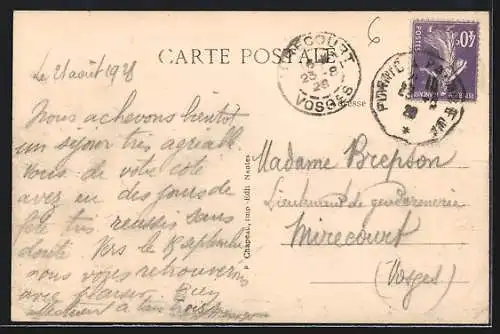 CARTE POSTALE
MIRECOURT
23 -8
28
VOSGES
PORNIC
28
POSTES
40c
Le 21 août 1928
Nous achevons bientôt
un séjour très agréable.
Vous de votre côté
avez eu des jours de
fête très réussis sans
doute. Vers le 8 septembre
nous vous retrouverons
avec plaisir. Bien
à tous trois
Adresse
Madame Brepson
Lieutenant de gendarmerie
Mirecourt
(Vosges)
P Chapeau, imp Edit Nantes
6